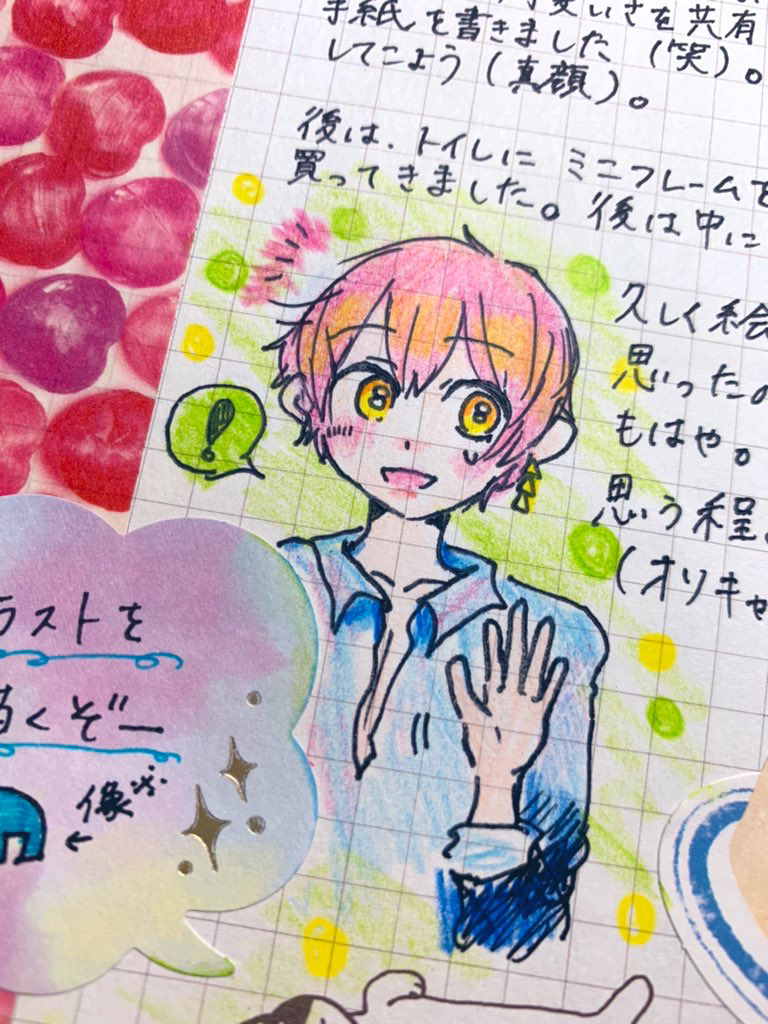 手紙を書きました(笑)。
してこよう(真顔)。
後は、トイレに ミニフレームを
買ってきました。後は中に
久しく絵
思ったの
もはや。
思う程
(オリキャ
!
ラストを
描くぞー
←像